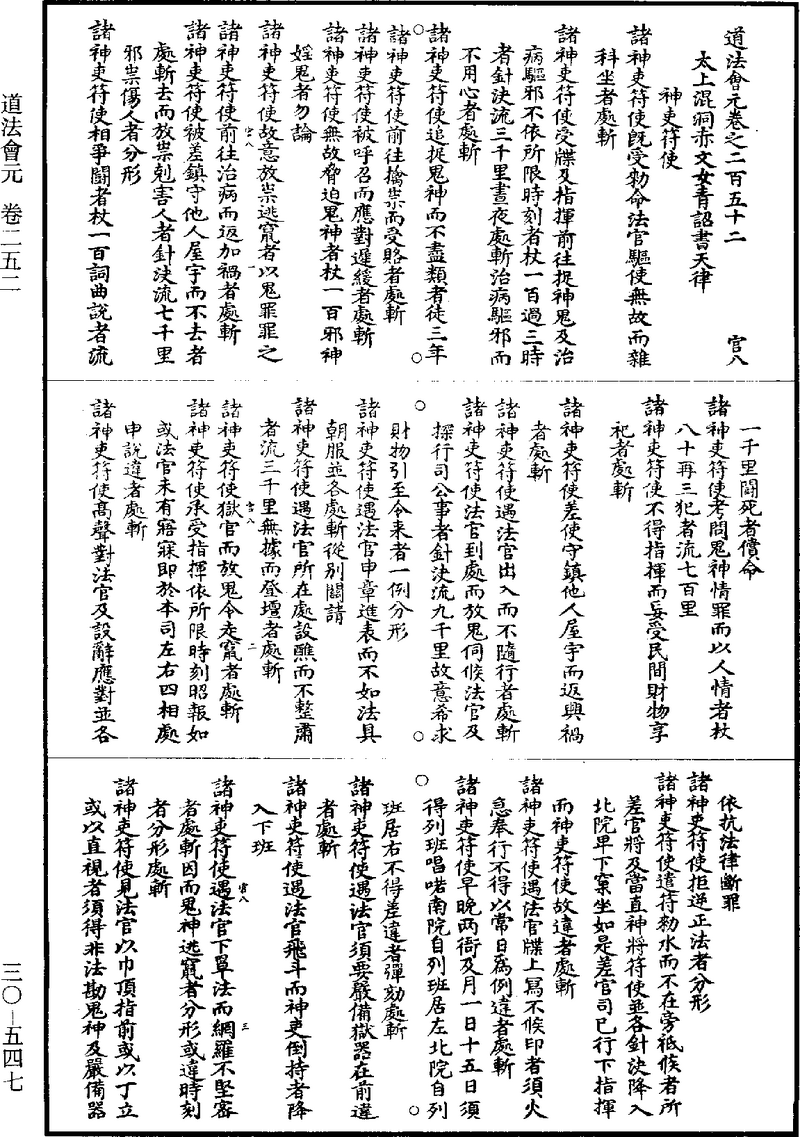 道法會元卷之二百五十二 官八
太上混洞赤文女青詔書天律
神吏符使
諸神吏符使旣受勑命法官驅使無故而雜
科坐者處斬
諸神吏符使受牒及指揮前往捉神鬼及治
病驅邪不依所限時刻者杖一百過三時
者針決流三千里晝夜處斬治病驅邪而
不用心者處斬
諸神吏符使追捉鬼神而不盡類者徒三年
諸神吏符使前往擒祟而受賂者處斬
諸神吏符使被呼召而應對遲緩者處斬
諸神吏符使無故脅迫鬼神者杖一百邪神
婬鬼者勿論
諸神吏符使故意放祟逃竄者以鬼罪罪之
諸神吏符使前往治病而返加禍者處斬
諸神吏符使被差鎮守他人屋宇而不去者
處斬去而放祟剋害人者針決流七千里
邪祟傷人者分形
諸神吏符使相爭鬪者杖一百詞曲說者流
一千里鬪死者償命
諸神吏符使考問鬼神情罪而以人情者杖
八十再三犯者流七百里
諸神吏符使不得指揮而妄受民間財物享
祀者處斬
諸神吏符使差使守鎮他人屋宇而返興禍
者處斬
諸神吏符使遇法官出入而不隨行者處斬
諸神吏符使法官到處而放鬼伺候法官及
探行司公事者針決流九千里故意希求
財物引至令来者一例分形
諸神吏符使遇法官申章進表而不如法具
朝服並各處斬從別關請
諸神吏符使遇法官所在處設醮而不整肅
者流三千里無據而登壇者處斬
諸神吏符使獄官而放鬼令走竄者處斬
諸神吏符使承受指揮依所限時刻昭報如
或法官未有寤寐即於本司左右四相處
申說違者處斬
諸神吏符使高聲對法官及設辭應對並各
依抗法律斷罪
諸神吏符使拒逆正法者分形
諸神吏符使遣符勑水而不在旁祗候者所
差官將及當直神將符使並各針決降入
北院早下窠坐如是差官司已行下指揮
而神吏符使故違者處斬
諸神吏符使遇法官牒上寫不候印者須火
急奉行不得以常日爲例違者處斬
諸神吏符使早晚兩衙及月一日十五日須
得列班唱喏南院自列班居左北院自列
班居右不得差違者彈劾處斬
諸神吏符使遇法官須要嚴備獄器在前違
者處斬
諸神吏符使遇法官飛斗而神吏倒持者降
入下班
諸神吏符使遇法官下罩法而網羅不堅審
者處斬因而鬼神逃竄者分形或違時刻
者分形處斬
諸神吏符使見法官以巾頂指前或以丁立
或以直視者須得非法勘鬼神及嚴備器
道法會元 卷二五二
三〇－五四七